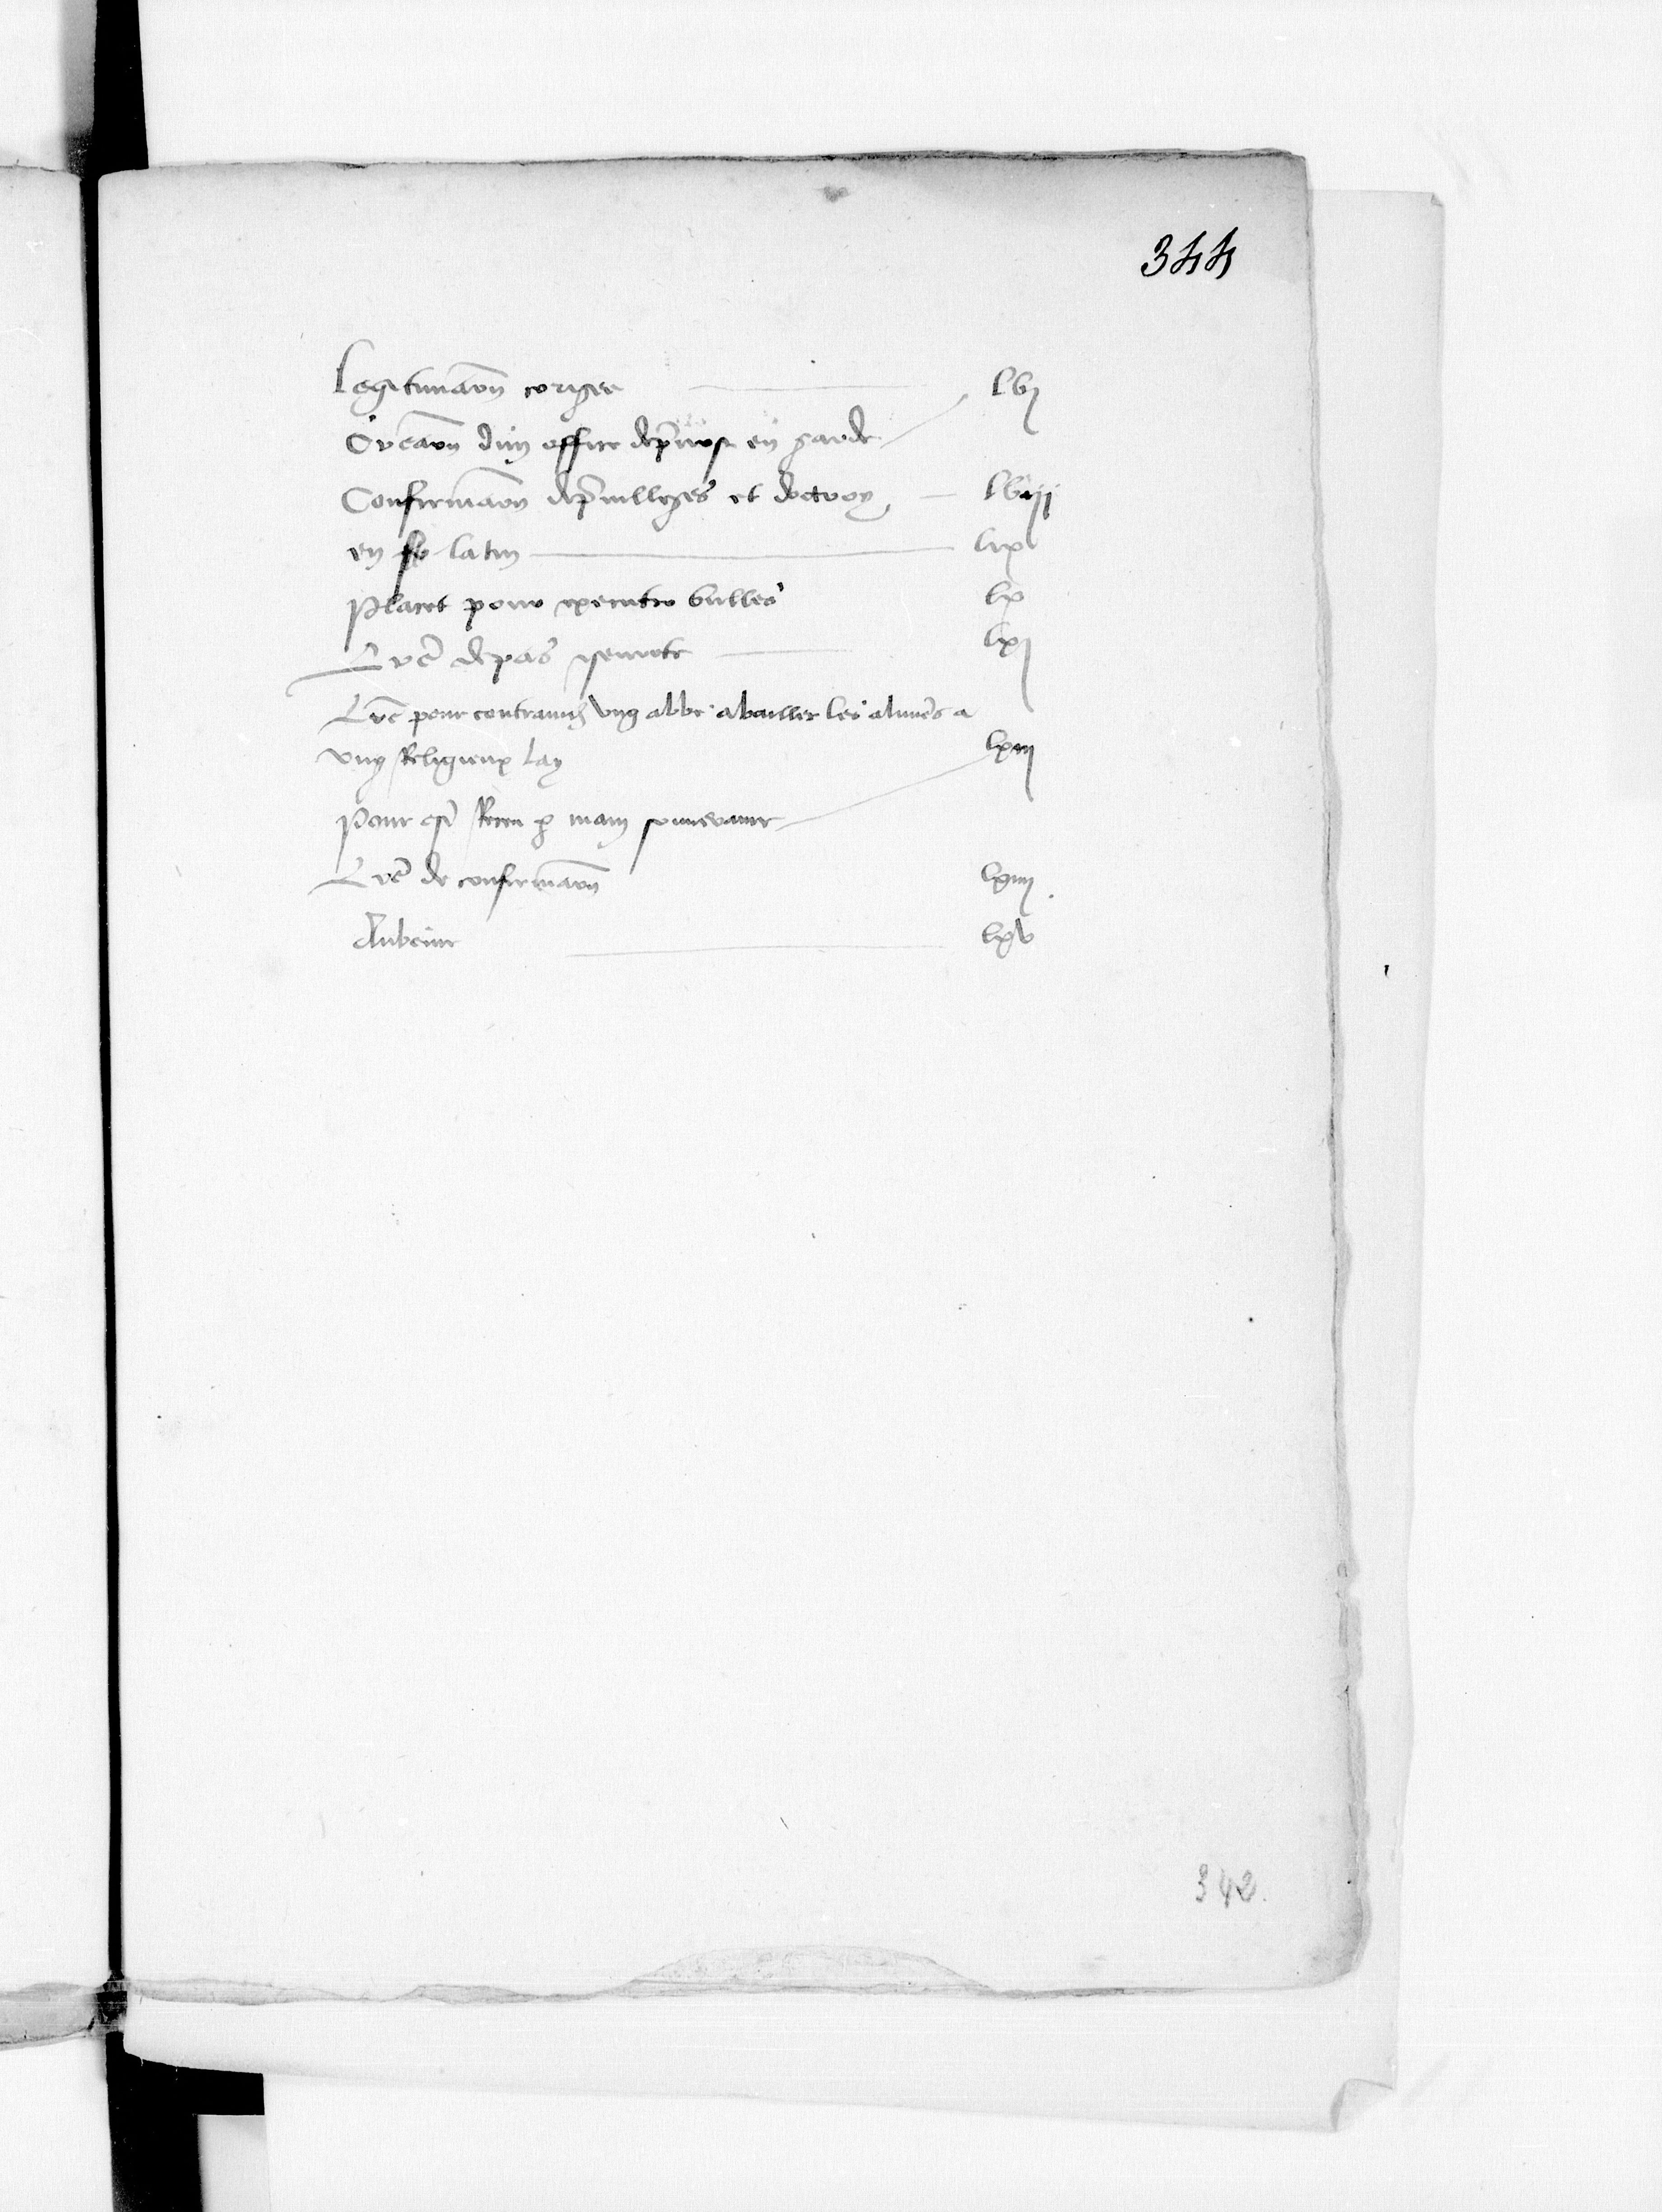 344
Legitimaon corigee lvj
Creaon dun office deprevost en garde
Confirmaon deprivilleges et doctroy lviij
en latin lix
Placet pour executer bulles lx
Lre depas lxj
Lre pour contraindre ung abbe abailler les alimens a
ung Religieux lay lxiij
Pour estre Receu p main souveraine
Lre de confirmaon lxiiij
Aubeine lxv
342.